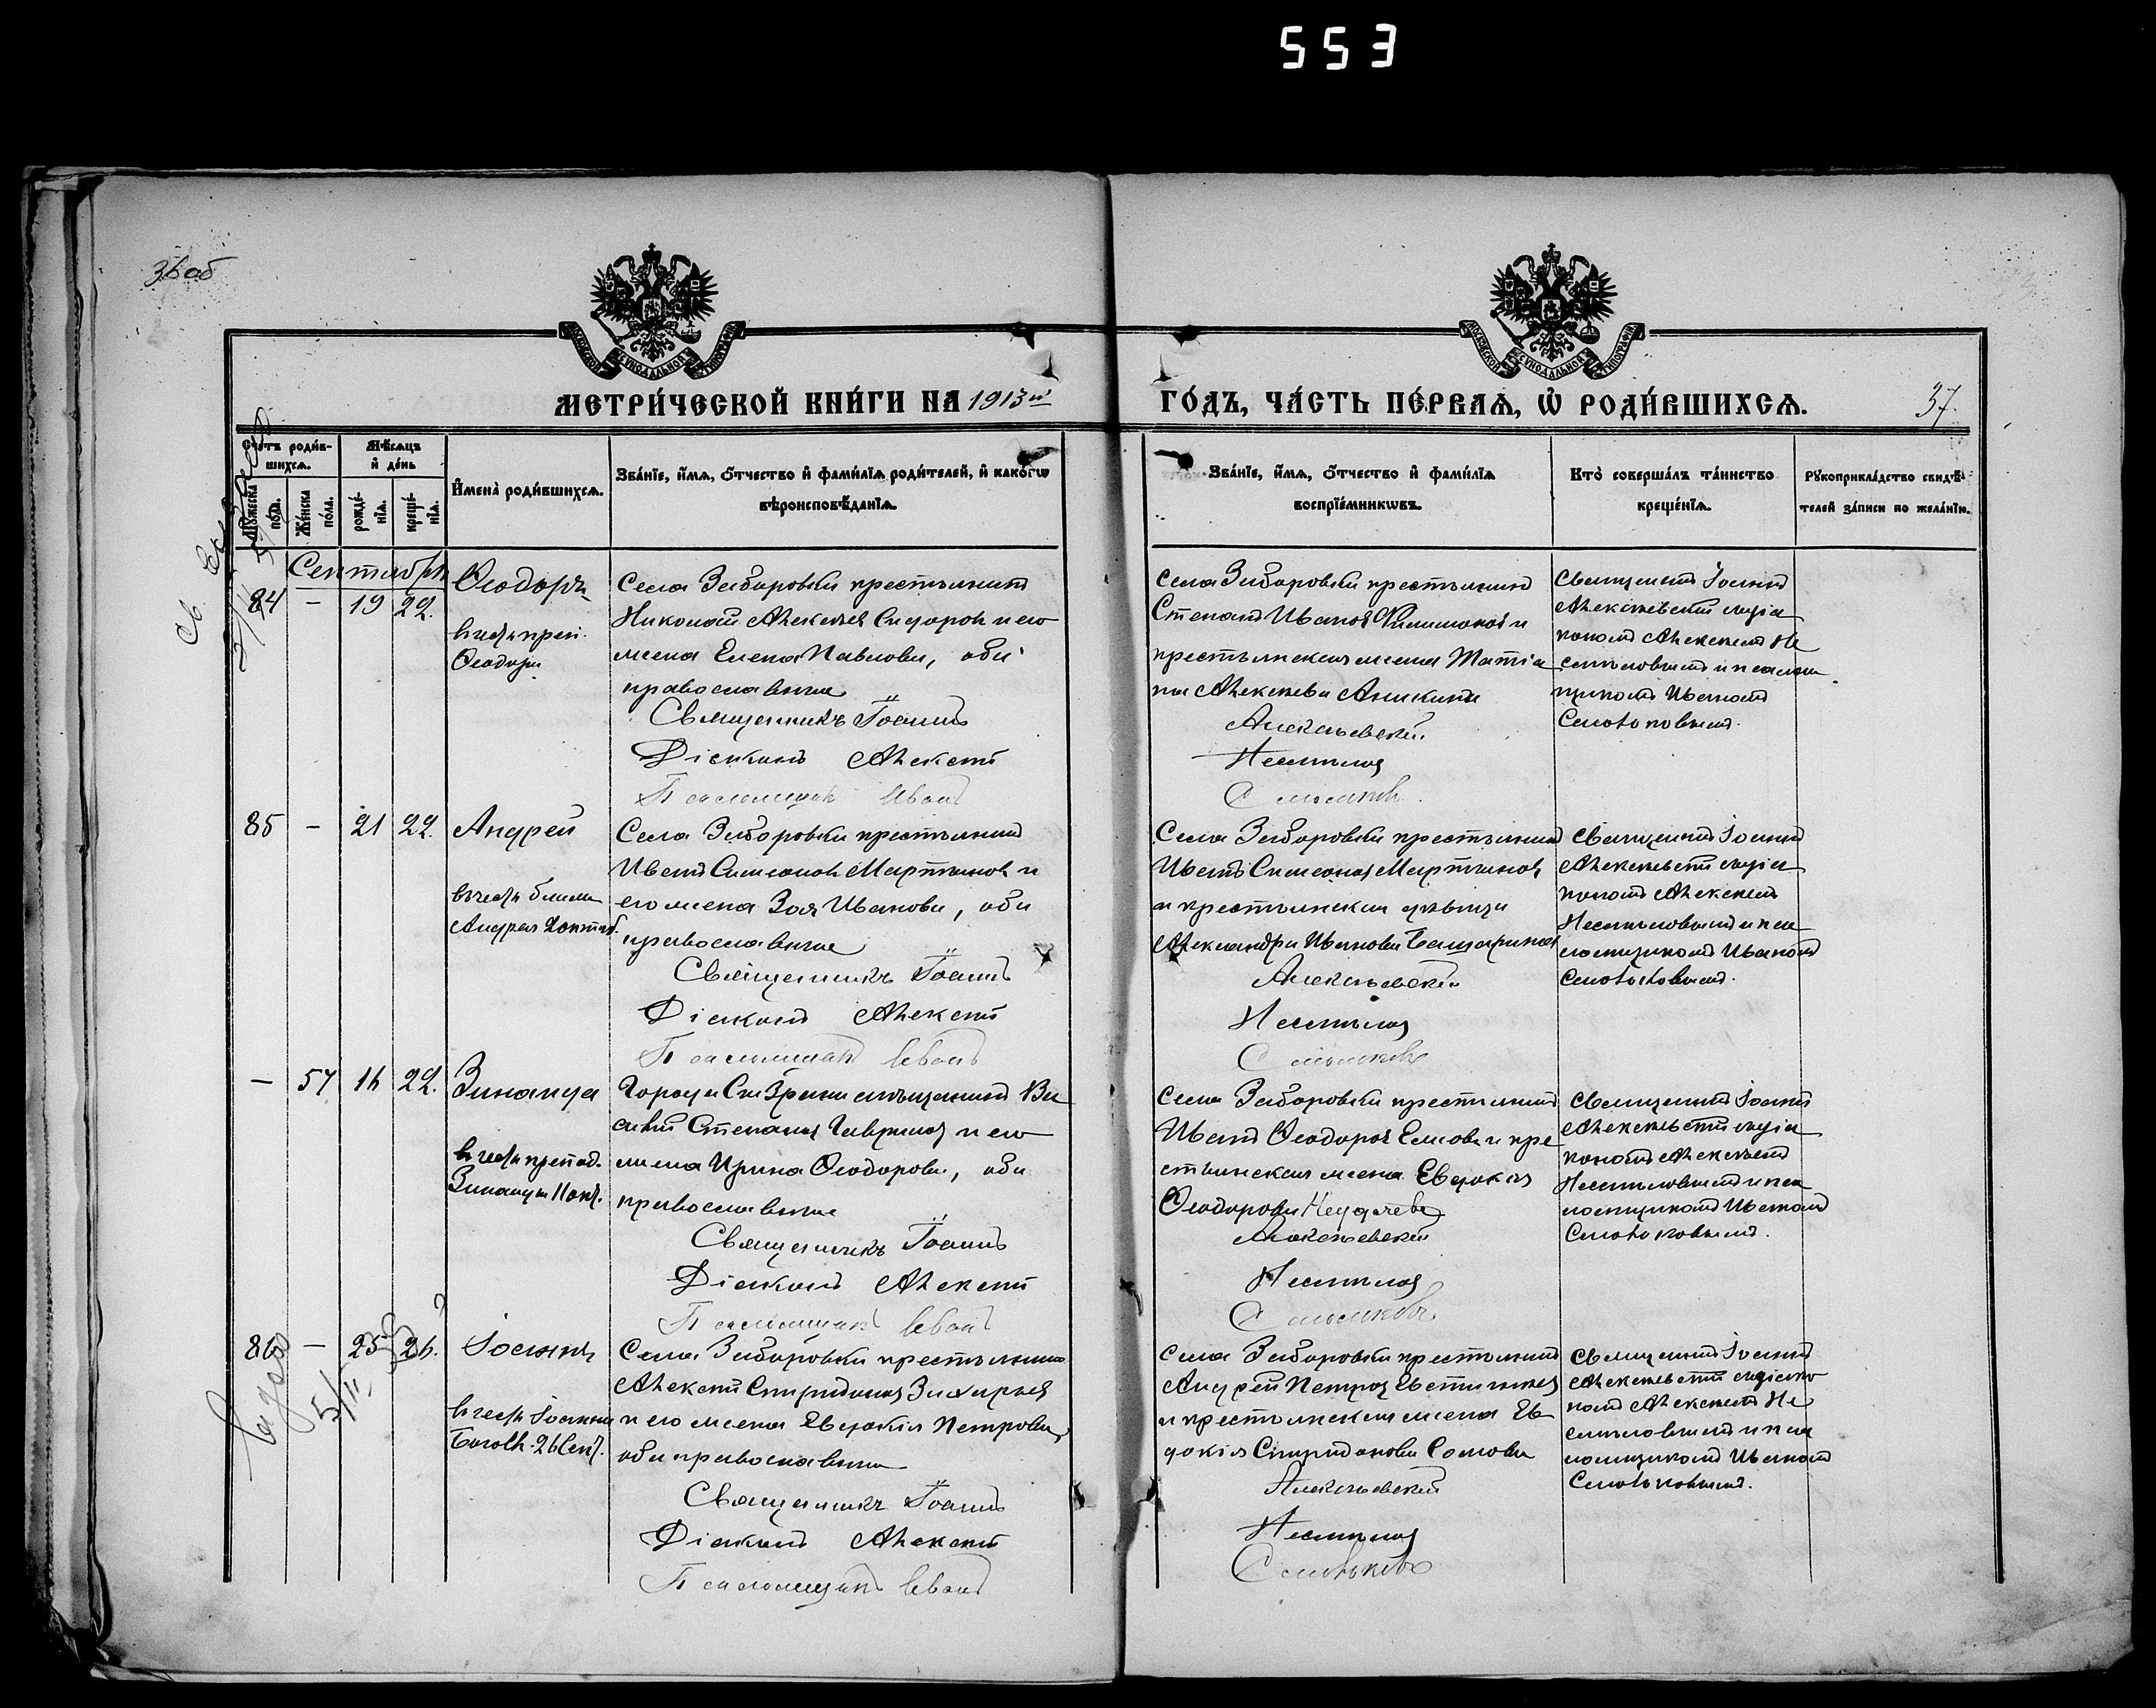 553
36 об
МОСКОВСКОЙ СѴНОДАЛЬНОЙ ТИПОГРАФІИ
МОСКОВСКОЙ СѴНОДАЛЬНОЙ ТИПОГРАФІИ
МЕТРИ́ЧЕСКОЙ КНИ́ГИ НА 1913й
ГО́ДЪ, ЧА́СТЬ ПЕ́РВАѦ, Ѡ҆ РОДИ́ВШИХСѦ.
37.
Счетъ роди́в-
шихсѧ.
Мѣ́сѧцъ
и҆ де́нь
Мꙋ́жеска
по́ла.
Же́нска
по́ла.
рожде́-
нїѧ.
креще́-
нїѧ.
И҆мена̀ роди́вшихсѧ.
Зва́нїе, и҆́мѧ, ѻ҆́тчество и҆ фами́лїѧ роди́телей, и҆ како́гѡ
вѣроисповѣ́данїѧ.
Зва́нїе, и҆́мѧ, ѻ҆́тчество и҆ фами́лїѧ
воспрїе́мникѡвъ.
Кто̀ соверша́лъ та́инство
креще́нїѧ.
Рꙋкоприкла́дство свидѣ́-
телей за́писи по жела́нїю.
Сентябрь
84 – 19 22.
Ѳеодоръ
въ честь преп.
Ѳеодора
Села Заборовки крестьянинъ
Николай Алексѣевъ Сидоровъ и его
жена Елена Павлова, оба
православные
Священникъ Іоаннъ
Діаконъ Алексѣй
Псаломщикъ Иванъ
Села Заборовки крестьянинъ
Степанъ Ивановъ Филимоновъ и
крестьянская жена Матіа
на Алексѣева Аникина
Алексѣевскій
Несмѣловъ
Смольковъ
Священникъ Іоаннъ
Алексѣевскій съ діа
кономъ Алексѣемъ Не
смѣловымъ и псалом
щикомъ Иваномъ
Смольковымъ.
85 – 21 22.
Андрей
въ честь блажен
Андрея 2 октяб.
Села Заборовки крестьянинъ
Иванъ Симеоновъ Мартыновъ и
его жена Зоя Иванова, оба
православные
Священникъ Іоаннъ
Діаконъ Алексѣй
Псаломщикъ Иванъ
Села Заборовки крестьянинъ
Иванъ Симеоновъ Мартыновъ
и крестьянская дѣвица
Александра Иванова
Алексѣевскій
Несмѣловъ
Смольковъ
Священникъ Іоаннъ
Алексѣевскій съ діа
кономъ Алексѣемъ
Несмѣловымъ и пса
ломщикомъ Иваномъ
Смольковымъ.
– 57 16 22.
Зинаида
въ честь препод.
Зинаиды 11 окт.
Города Сызрани мѣщанинъ Ва
силій Степановъ Гавриловъ и его
жена Ирина Ѳеодорова, оба
православные
Священникъ Іоаннъ
Діаконъ Алексѣй
Псаломщикъ Иванъ
Села Заборовки крестьянинъ
Иванъ Ѳеодоровъ и кре
стьянская жена Евдокія
Ѳеодорова Неудачева
Алексѣевскій
Несмѣловъ
Смольковъ
Священникъ Іоаннъ
Алексѣевскій съ діа
кономъ Алексѣемъ
Несмѣловымъ и пса
ломщикомъ Иваномъ
Смольковымъ.
86 – 25 26.
Іоаннъ
въ честь Іоанна
Богосл. 26 сент.
Села Заборовки крестьянинъ
Алексѣй Спиридоновъ Захарьевъ
и его жена Евдокія Петрова,
оба православные
Священникъ Іоаннъ
Діаконъ Алексѣй
Псаломщикъ Иванъ
Села Заборовки крестьянинъ
Андрей Петровъ Евстигнеевъ
и крестьянская жена Ев
докія Спиридонова Сомова
Алексѣевскій
Несмѣловъ
Смольковъ
Священникъ Іоаннъ
Алексѣевскій съ діако
номъ Алексѣемъ Не
смѣловымъ и пса
ломщикомъ Иваномъ
Смольковымъ.